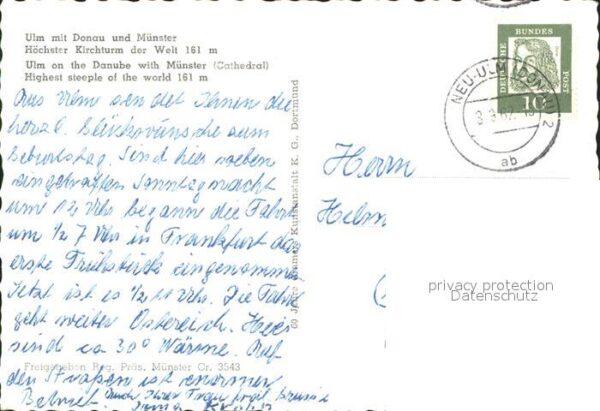 Ulm mit Donau und Münster
Höchster Kirchturm der Welt 161 m
Ulm on the Danube with Münster (Cathedral)
Highest steeple of the world 161 m
Aus Ulm sendet Ihnen die
herzl. Glückwünsche zum
Geburtstag. Sind hier soeben
eingetroffen Sonntagnacht
um 1/2 Uhr begann die Fahrt
um 1/2 7 Uhr in Frankfurt das
erste Frühstück eingenommen
Jetzt ist es 1/2 11 Uhr. Die Fahrt
geht weiter Östereich. Hier
sind ca 30° Wärme. Auf
den Straßen ist enormer
Betrieb Auch Ihrer Frau
Freigegeben Reg. Präs. Münster Cr. 3543
60 Jahre Kunstanstalt K. G., Dortmund
DEUTSCHE BUNDESPOST
10
NEU-ULM (DONAU) 2
ab
Herrn
Helm
privacy protection
Datenschutz